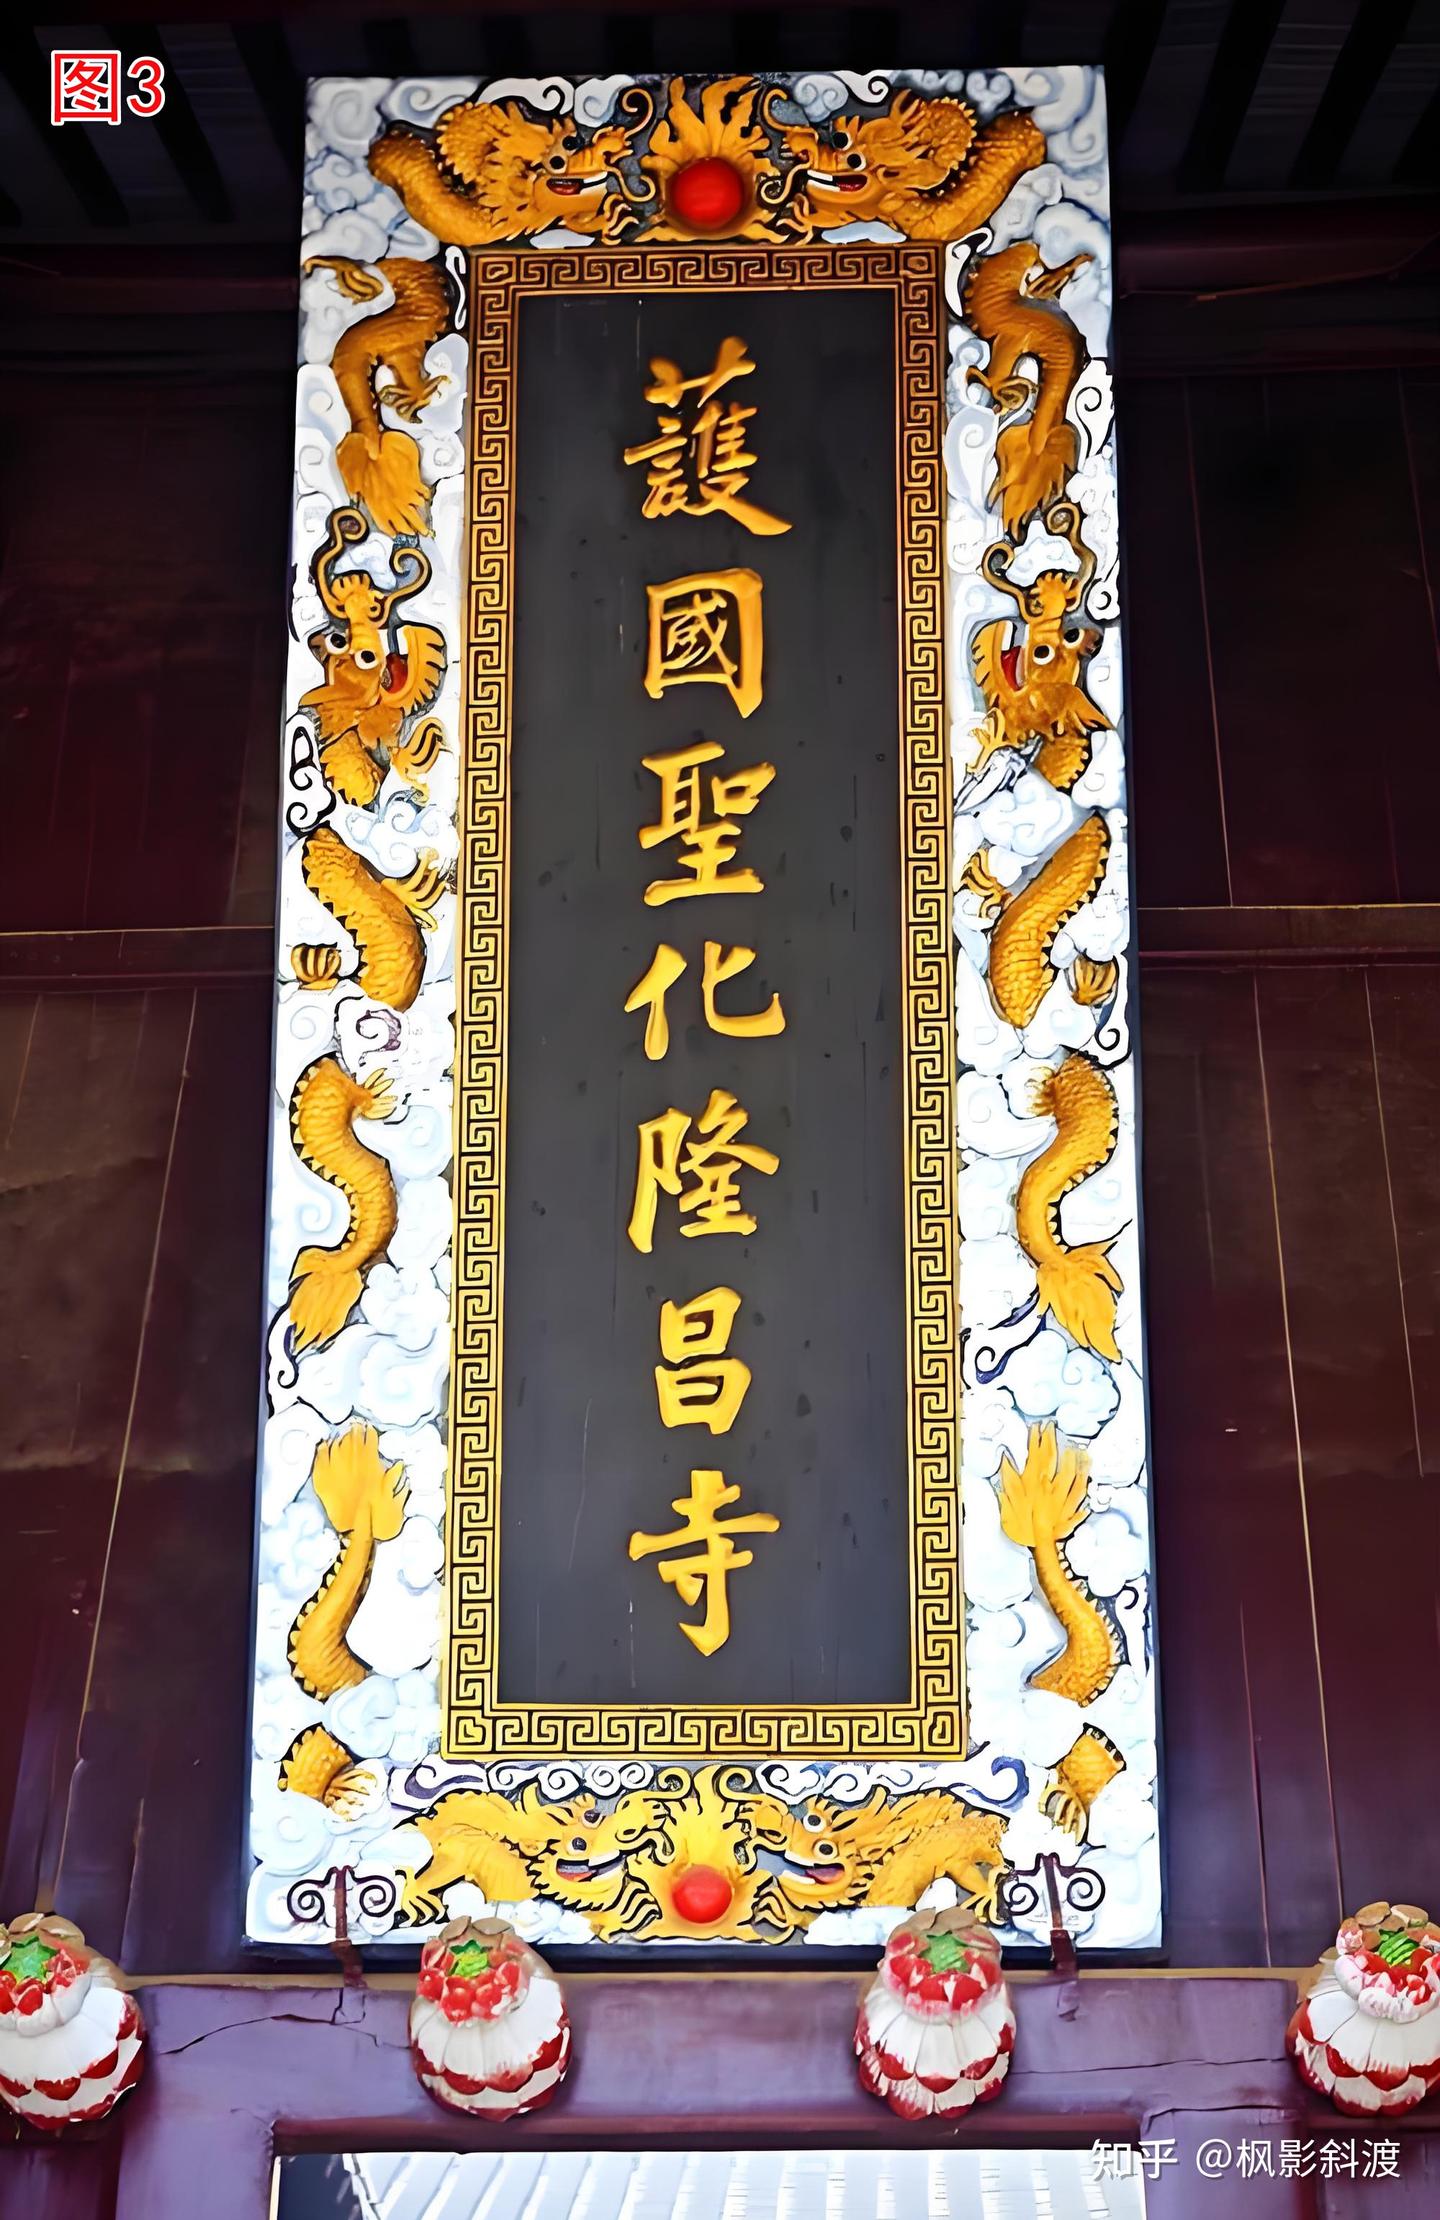 图3
護國聖化隆昌寺
知乎 @枫影斜渡